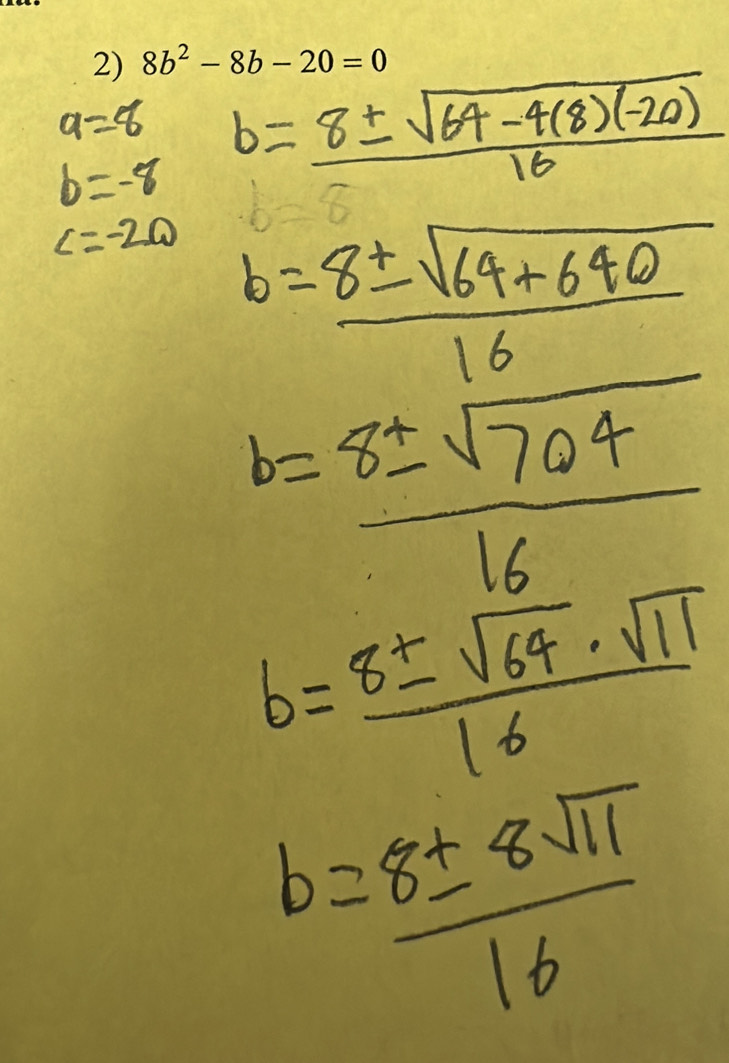 2) 8b² − 8b − 20 = 0
a=8
b=-8
c=-20
b= 8±√64-4(8)(-20) / 16
b=8
b=8±√64+640 / 16
b=8±√704 / 16
b=8±√64·√11 / 16
b=8±8√11 / 16